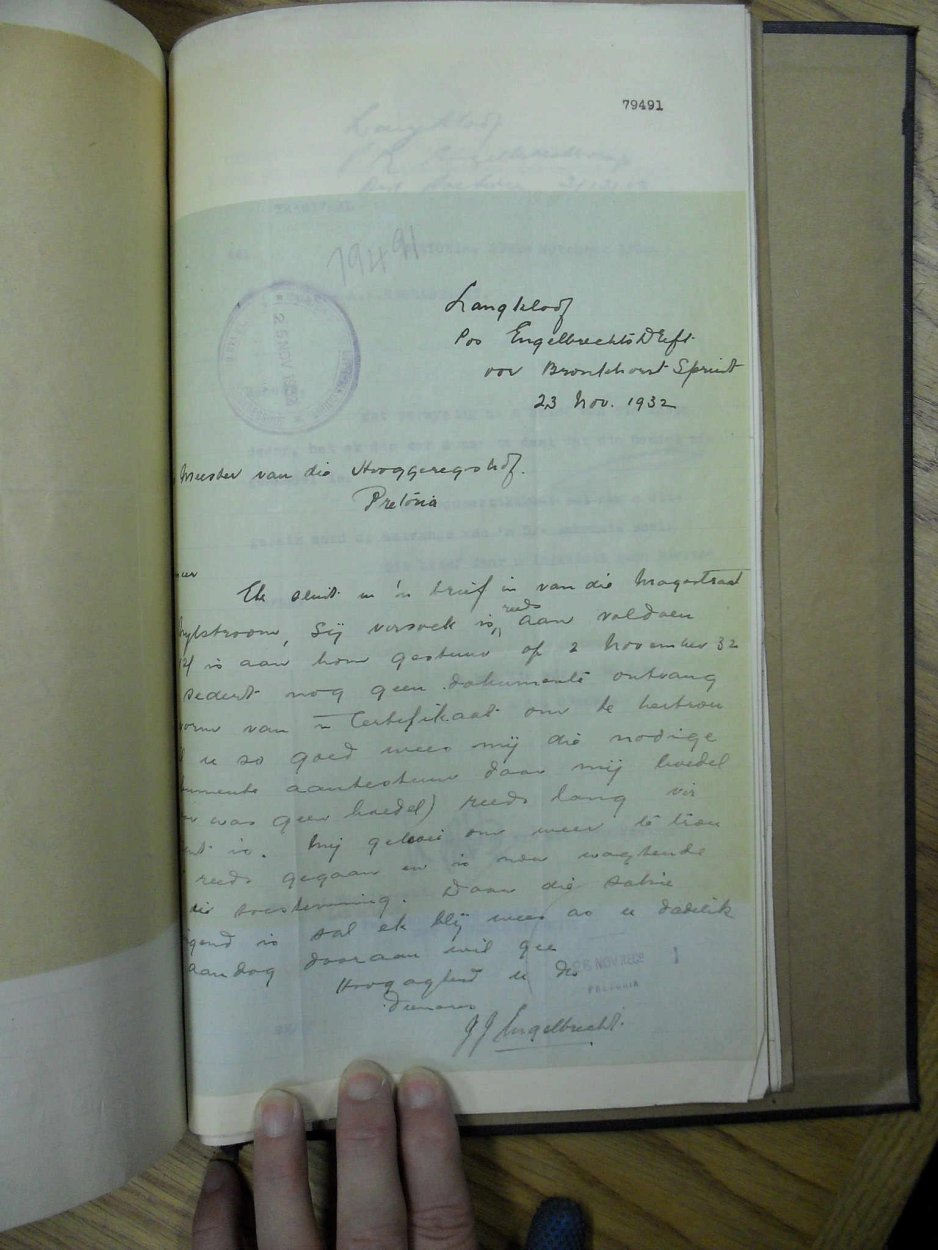 79491
79491
Langkloof
Pos Engelbrechts Drift
oor Bronkhorst Spruit
23 Nov. 1932
Meester van die Hooggeregshof.
Pretoria
Ek sluit in 'n brief in van die Magestraat
ylstroom, Sij versoek is reeds aan voldaen
is aan hom gestuur op 2 November 32
sedert nog geen dokumente ontvang
vorm van 'n Certifikaat om te hertrou
u so goed wees mij die nodige
umente aantestuur daar mij boedel
was geen boedel) reeds lang
is. Mij geboie om weer te trou
reeds gegaan en is nou wagtende
die toestemming. Daar die sakie
gend is sal ek blij wees as u dadelik
aandag daaraan wil gee
Hoogagtend u dw
Dienares
J J Engelbrecht.